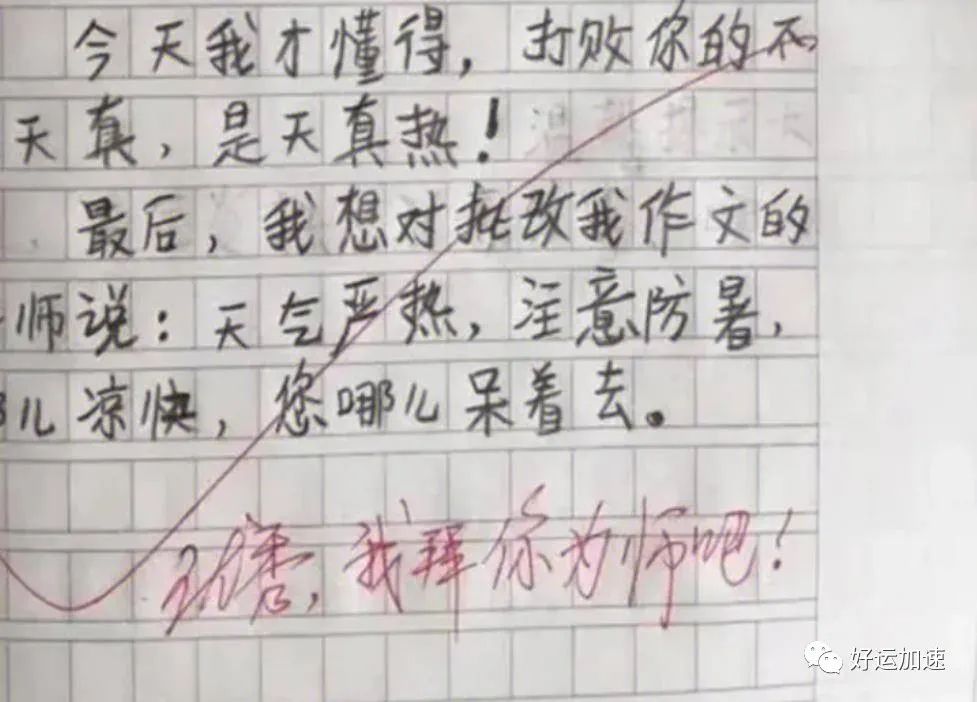 今天我才懂得，打败你的不
天真，是天真热！
最后，我想对批改我作文的
师说：天气严热，注意防暑，
儿凉快，您哪儿呆着去。
我拜你为师吧！
好运加速